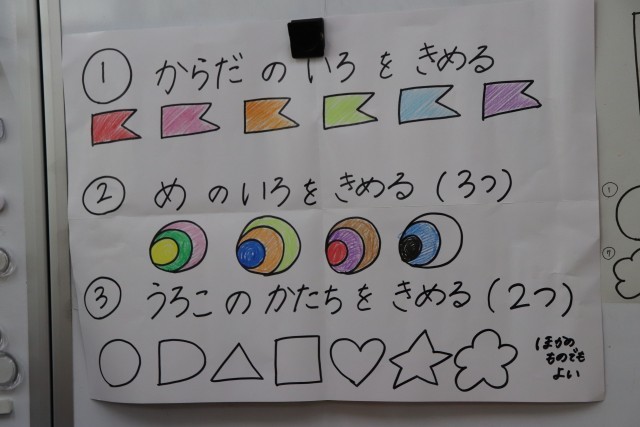 ① からだ の いろ を きめる
② め の いろ を きめる (3つ)
③ うろこ の かたち を きめる (2つ)
ほかの
ものでも
よい